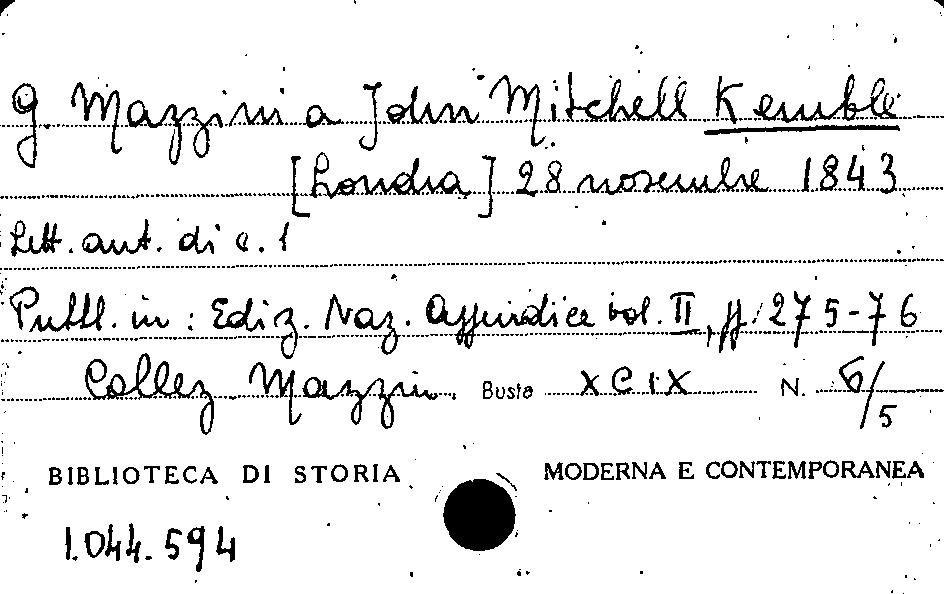 G. Mazzini a John Mitchell Kemble
[Londra] 28 novembre 1843
Lett. aut. di c. 1
Pubbl. in: Ediz. Naz. Appendice vol. II, pp. 275-76
Collez. Mazzin. Busta XCIX N. 6/5
BIBLIOTECA DI STORIA MODERNA E CONTEMPORANEA
1.044.594